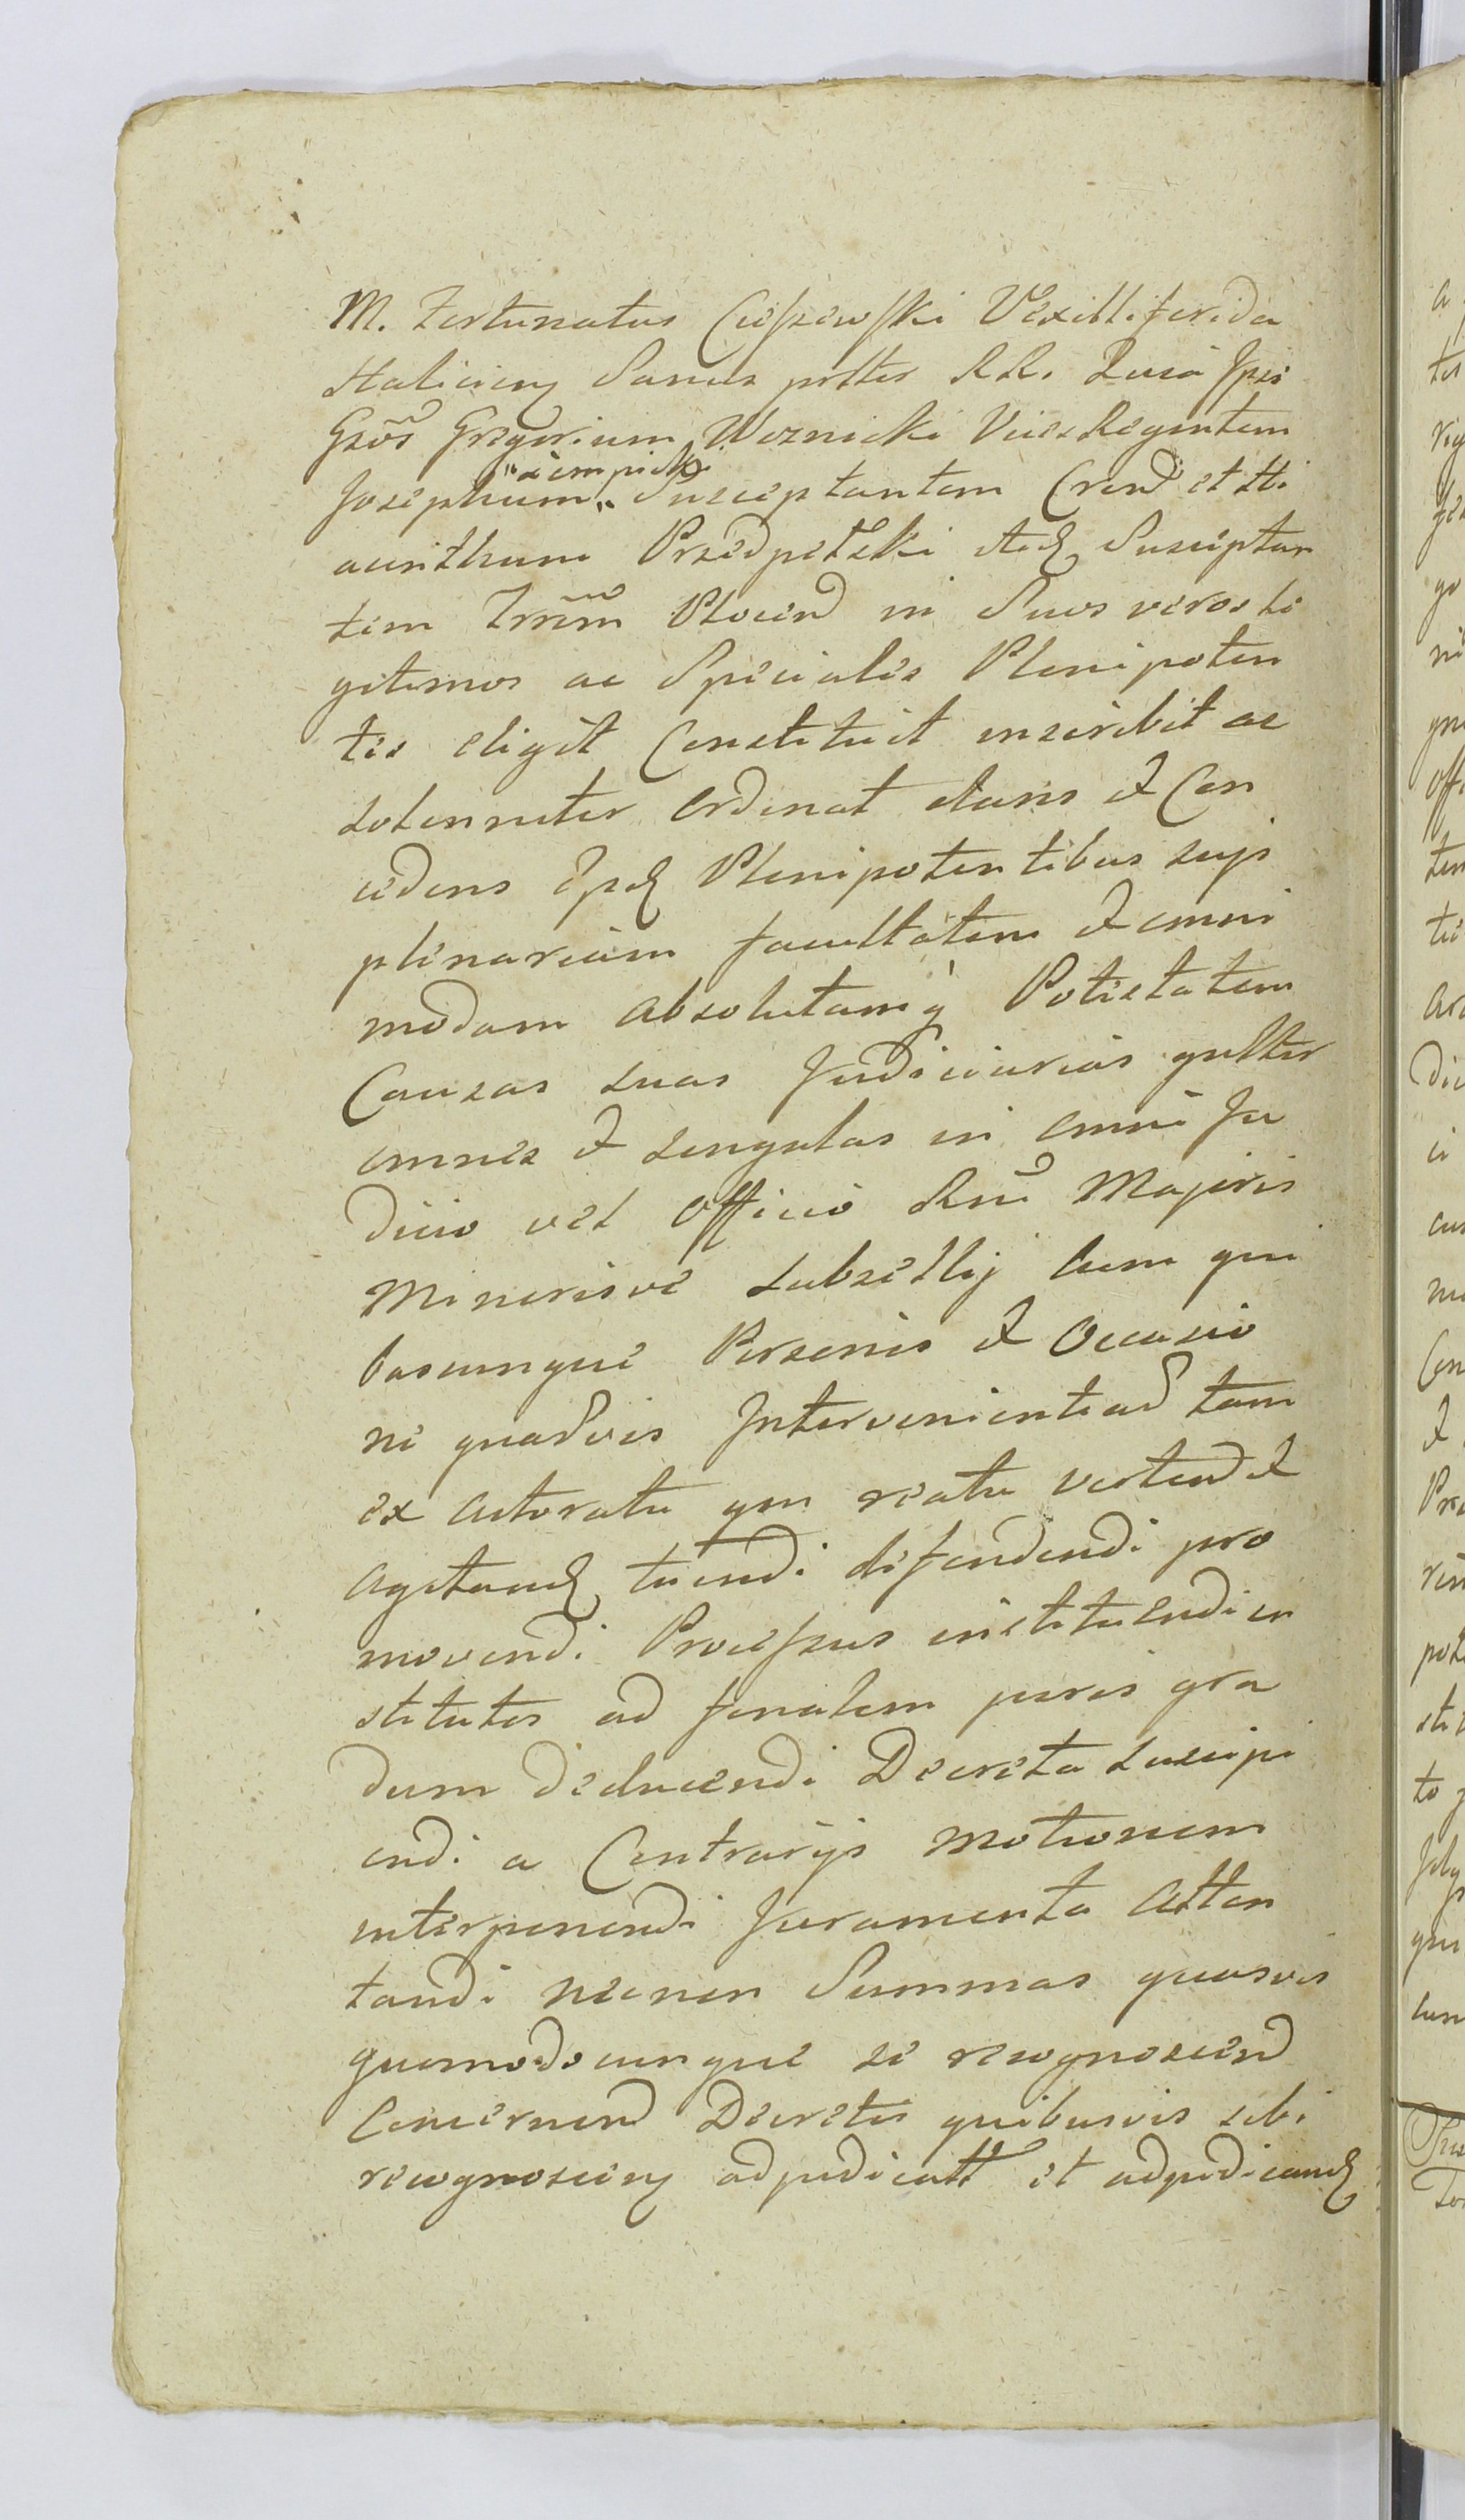 M. Fortunatus Cieszewski Vexilliferida
Haliciens Sanus prtter RR. Lucā Ipsi
Gnōs Gregorium Woznicki ViceRegentem
"Lempicki
Josephum" Susceptantem Crend et Hi
acinthum Przedpełski Actq Susceptan
tem Plocend in Suos veros le
gitimos ac Speciales Plenipoten
tes eligit Constituit inscribit ac
solenniter Ordinat dans et Con
cedens Ipsq Plenipotentibus suis
plenariam facultatem et omni
modam absolutamq Potestatem
Causas suas Judiciarias gnltter
omnes et singulas in omni Ju
dicio vel Officio Rni Majoris
Minorisve subsellij cum qui
buscunque Personis et Occasio
ne quadvis Intervenientiad tam
ex Actoratu qm reatu vertend et
agitandq tuendi defendendi pro
movendi Processus instituendi in
stitutos ad finalem juris gra
dum deducendi Decreta suscipi
endi a Contrarijs motionem
interponendi Juramenta Atten
tandi necnon Summas quasvis
quomodocunque se recognoscend
Concernend Decretis quibusvis sibi
recognoscen adjudicatt et adjudicandq